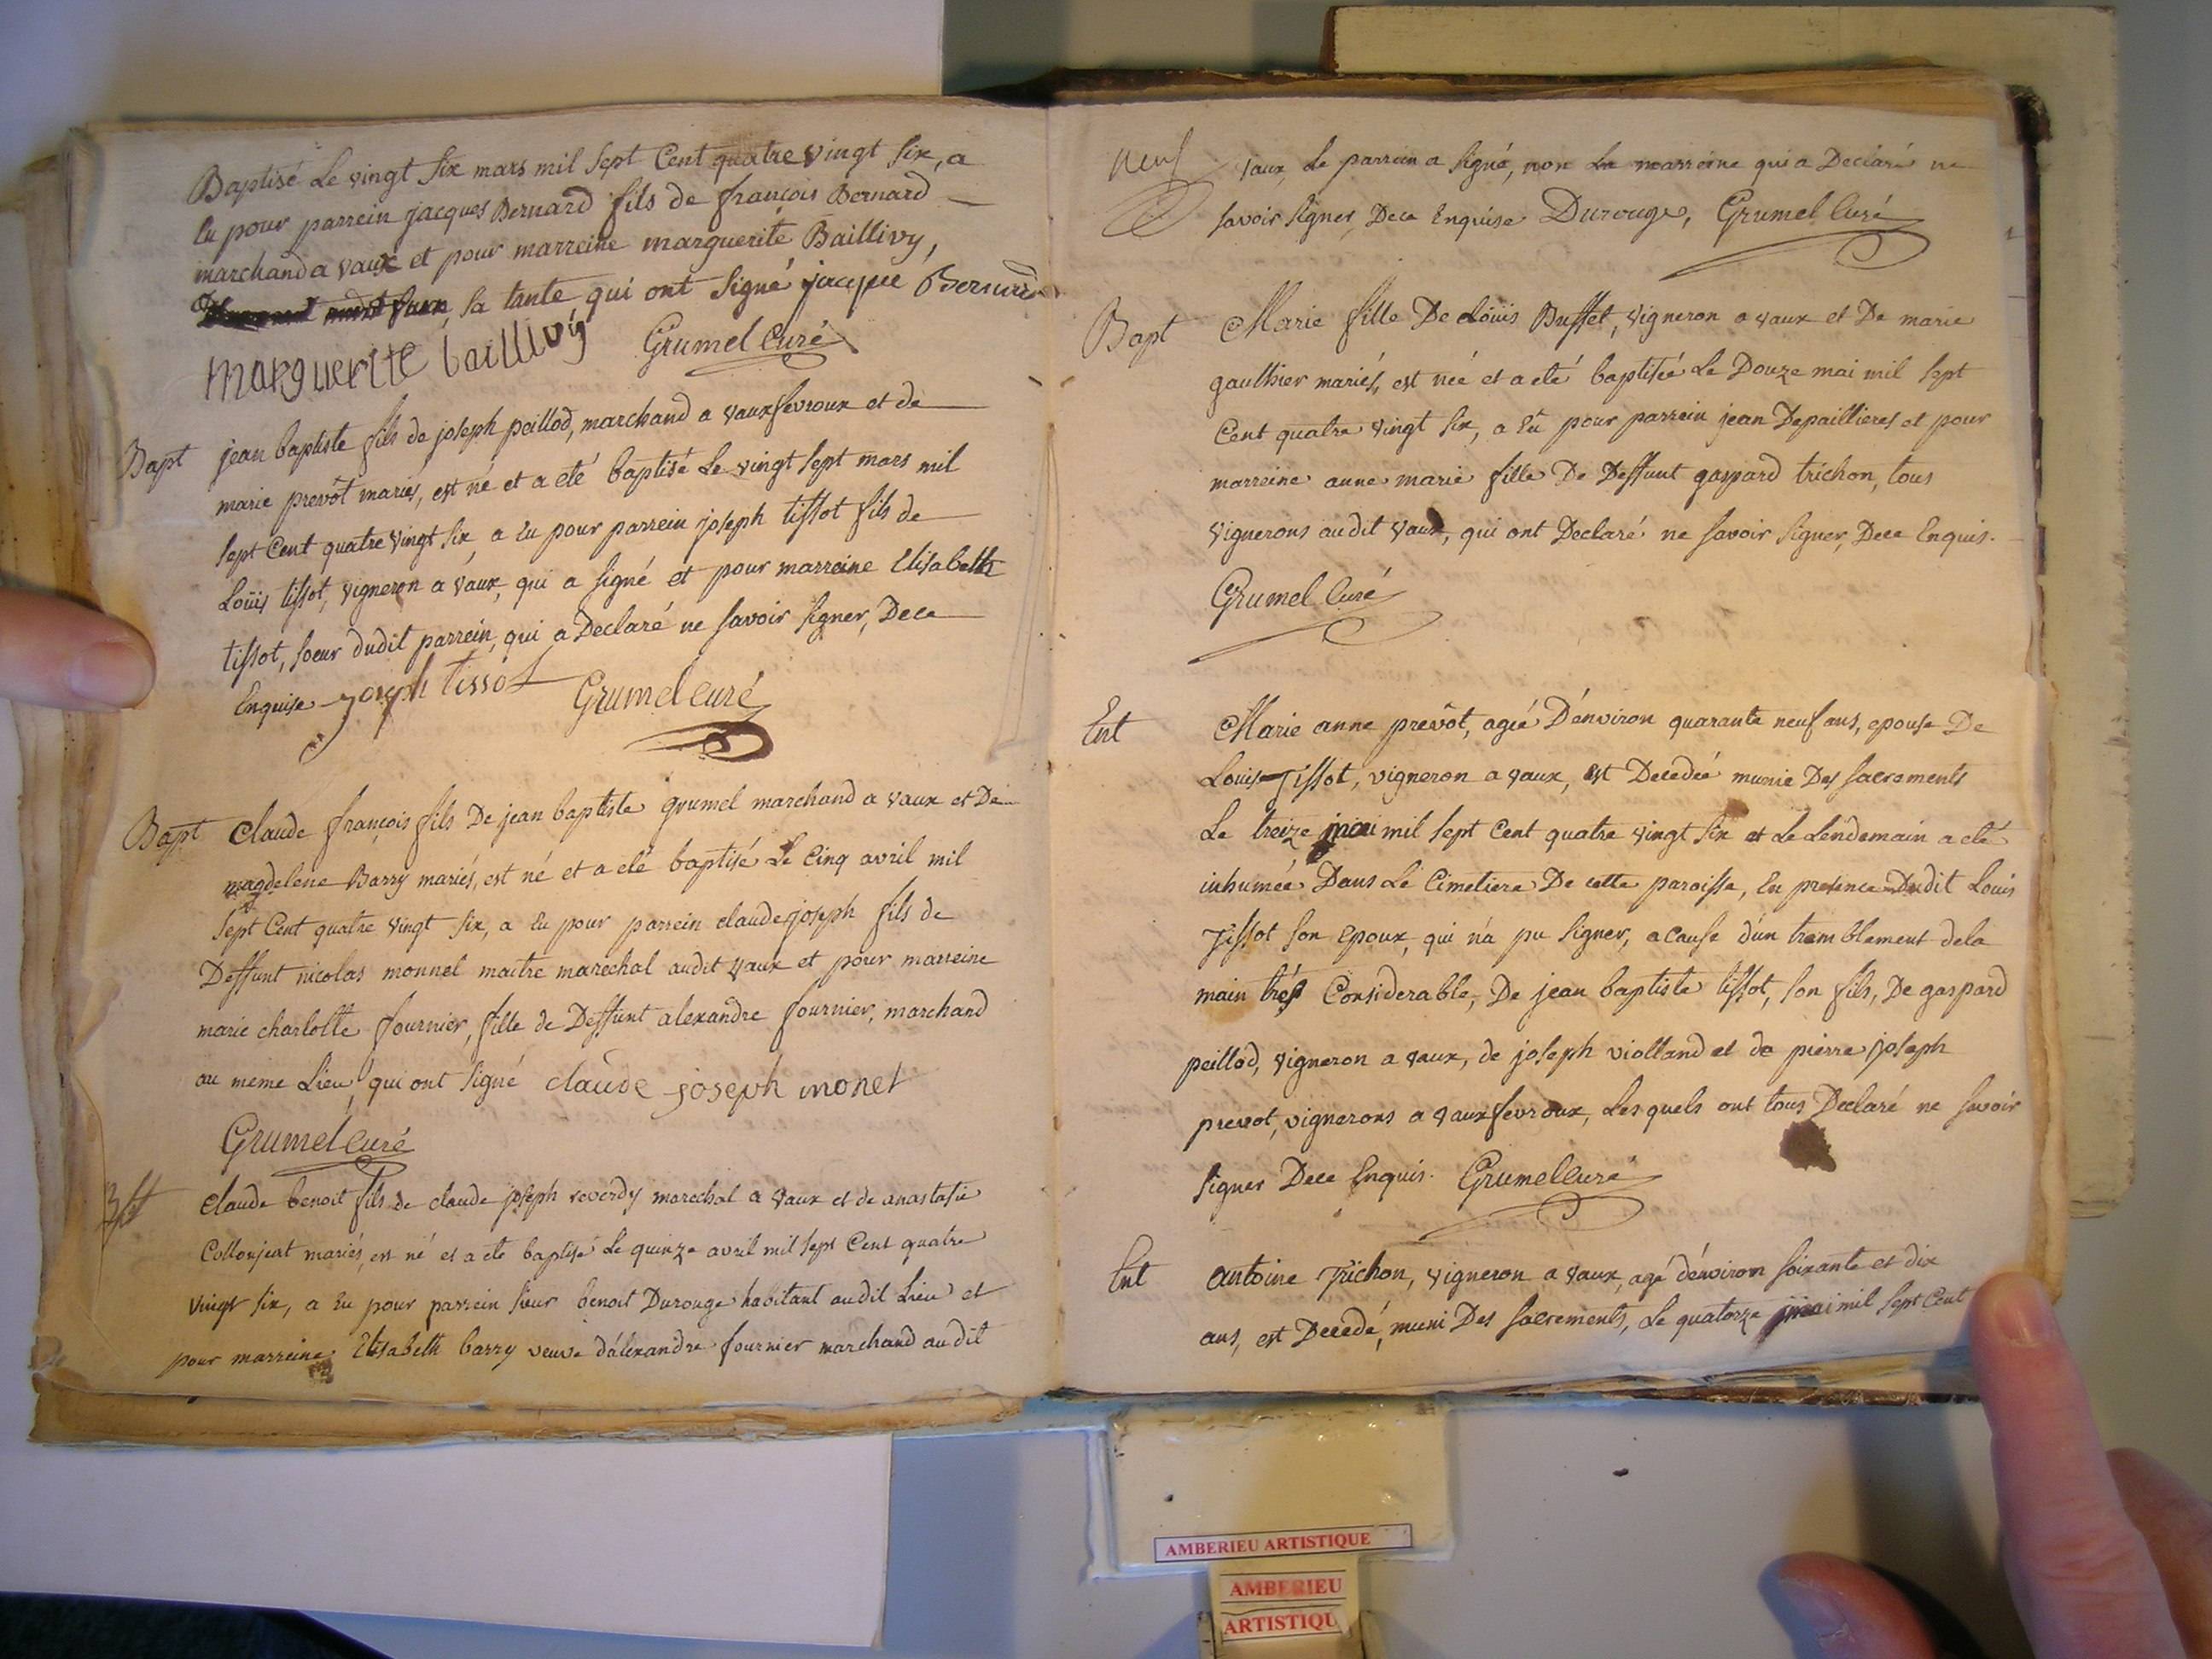 Baptisé Le vingt six mars mil sept Cent quatre vingt six, a
Eu pour parrein jacques Bernard fils de françois Bernard
marchand a vaux et pour marreine marguerite Baillivy,
sa tante qui ont signé jacque Bernard
marguerite baillivy Grumel Curé
Bapt jean baptiste fils de joseph peillod, marchand a vauxfevroux et de
marie prevôt mariés, est né et a eté baptisé Le vingt sept mars mil
sept Cent quatre vingt six, a Eu pour parrein joseph tissot fils de
Loüis tissot, vigneron a vaux, qui a signé et pour marreine Elisabeth
tissot, soeur dudit parrein, qui a Declaré ne savoir signer, Dece
Enquise joseph tissot Grumel curé
Bapt Claude françois fils De jean baptiste grumel marchand a vaux et De
magdelene Barry mariés, est né et a eté baptisé Le Cinq avril mil
sept Cent quatre vingt six, a Eu pour parrein claude joseph fils de
Deffunt nicolas monnel maitre marechal audit vaux et pour marreine
marie charlotte fournier, fille de Deffunt alexandre fournier, marchand
au meme Lieu, qui ont signé claude joseph monet
Grumel curé
Bpt Claude benoit fils de claude joseph reverdy marechal a vaux et de anastasie
Collonjeat mariés, est né et a eté baptisé Le quinze avril mil sept Cent quatre
vingt six, a Eu pour parrein sieur benoit Durouge habitant audit Lieu et
pour marreine Elisabeth barry veuve d'alexandre fournier marchand audit
neuf vaux, Le parrein a signé, non La marreine qui a Declaré ne
savoir signer, Dece Enquise Durouge, Grumel Curé
Bapt Marie fille De Loüis Buffet, vigneron a vaux et De marie
gaulthier mariés, est née et a eté baptisée Le Douze mai mil sept
Cent quatre vingt six, a Eu pour parrein jean Depaillieres et pour
marreine anne marie fille De Deffunt gaspard trichon, tous
vignerons audit vaux, qui ont Declaré ne savoir signer, Dece Enquis.
Grumel Curé
Ent Marie anne prevôt, agée D'environ quarante neuf ans, epouse De
Louis Tissot, vigneron a vaux, est Decedée munie Des sacrements
Le treize mai mil sept Cent quatre vingt six et Le Lendemain a eté
inhumée Dans Le Cimetiere De cette paroisse, En presence Dudit Louis
Tissot son Epoux, qui n'a pu signer, a Cause d'un tremblement dela
main très Considerable, De jean baptiste tissot, son fils, De gaspard
peillod, vigneron a vaux, de joseph violland et de pierre joseph
prevot, vignerons a vauxfevroux, Lesquels ont tous Declaré ne savoir
signer Dece Enquis. Grumel Curé
Ent antoine Trichon, vigneron a vaux, agé d'environ soixante et dix
ans, est Decedé, muni Des sacrements, Le quatorze mai mil sept Cent
AMBERIEU ARTISTIQUE
AMBERIEU
ARTISTIQU